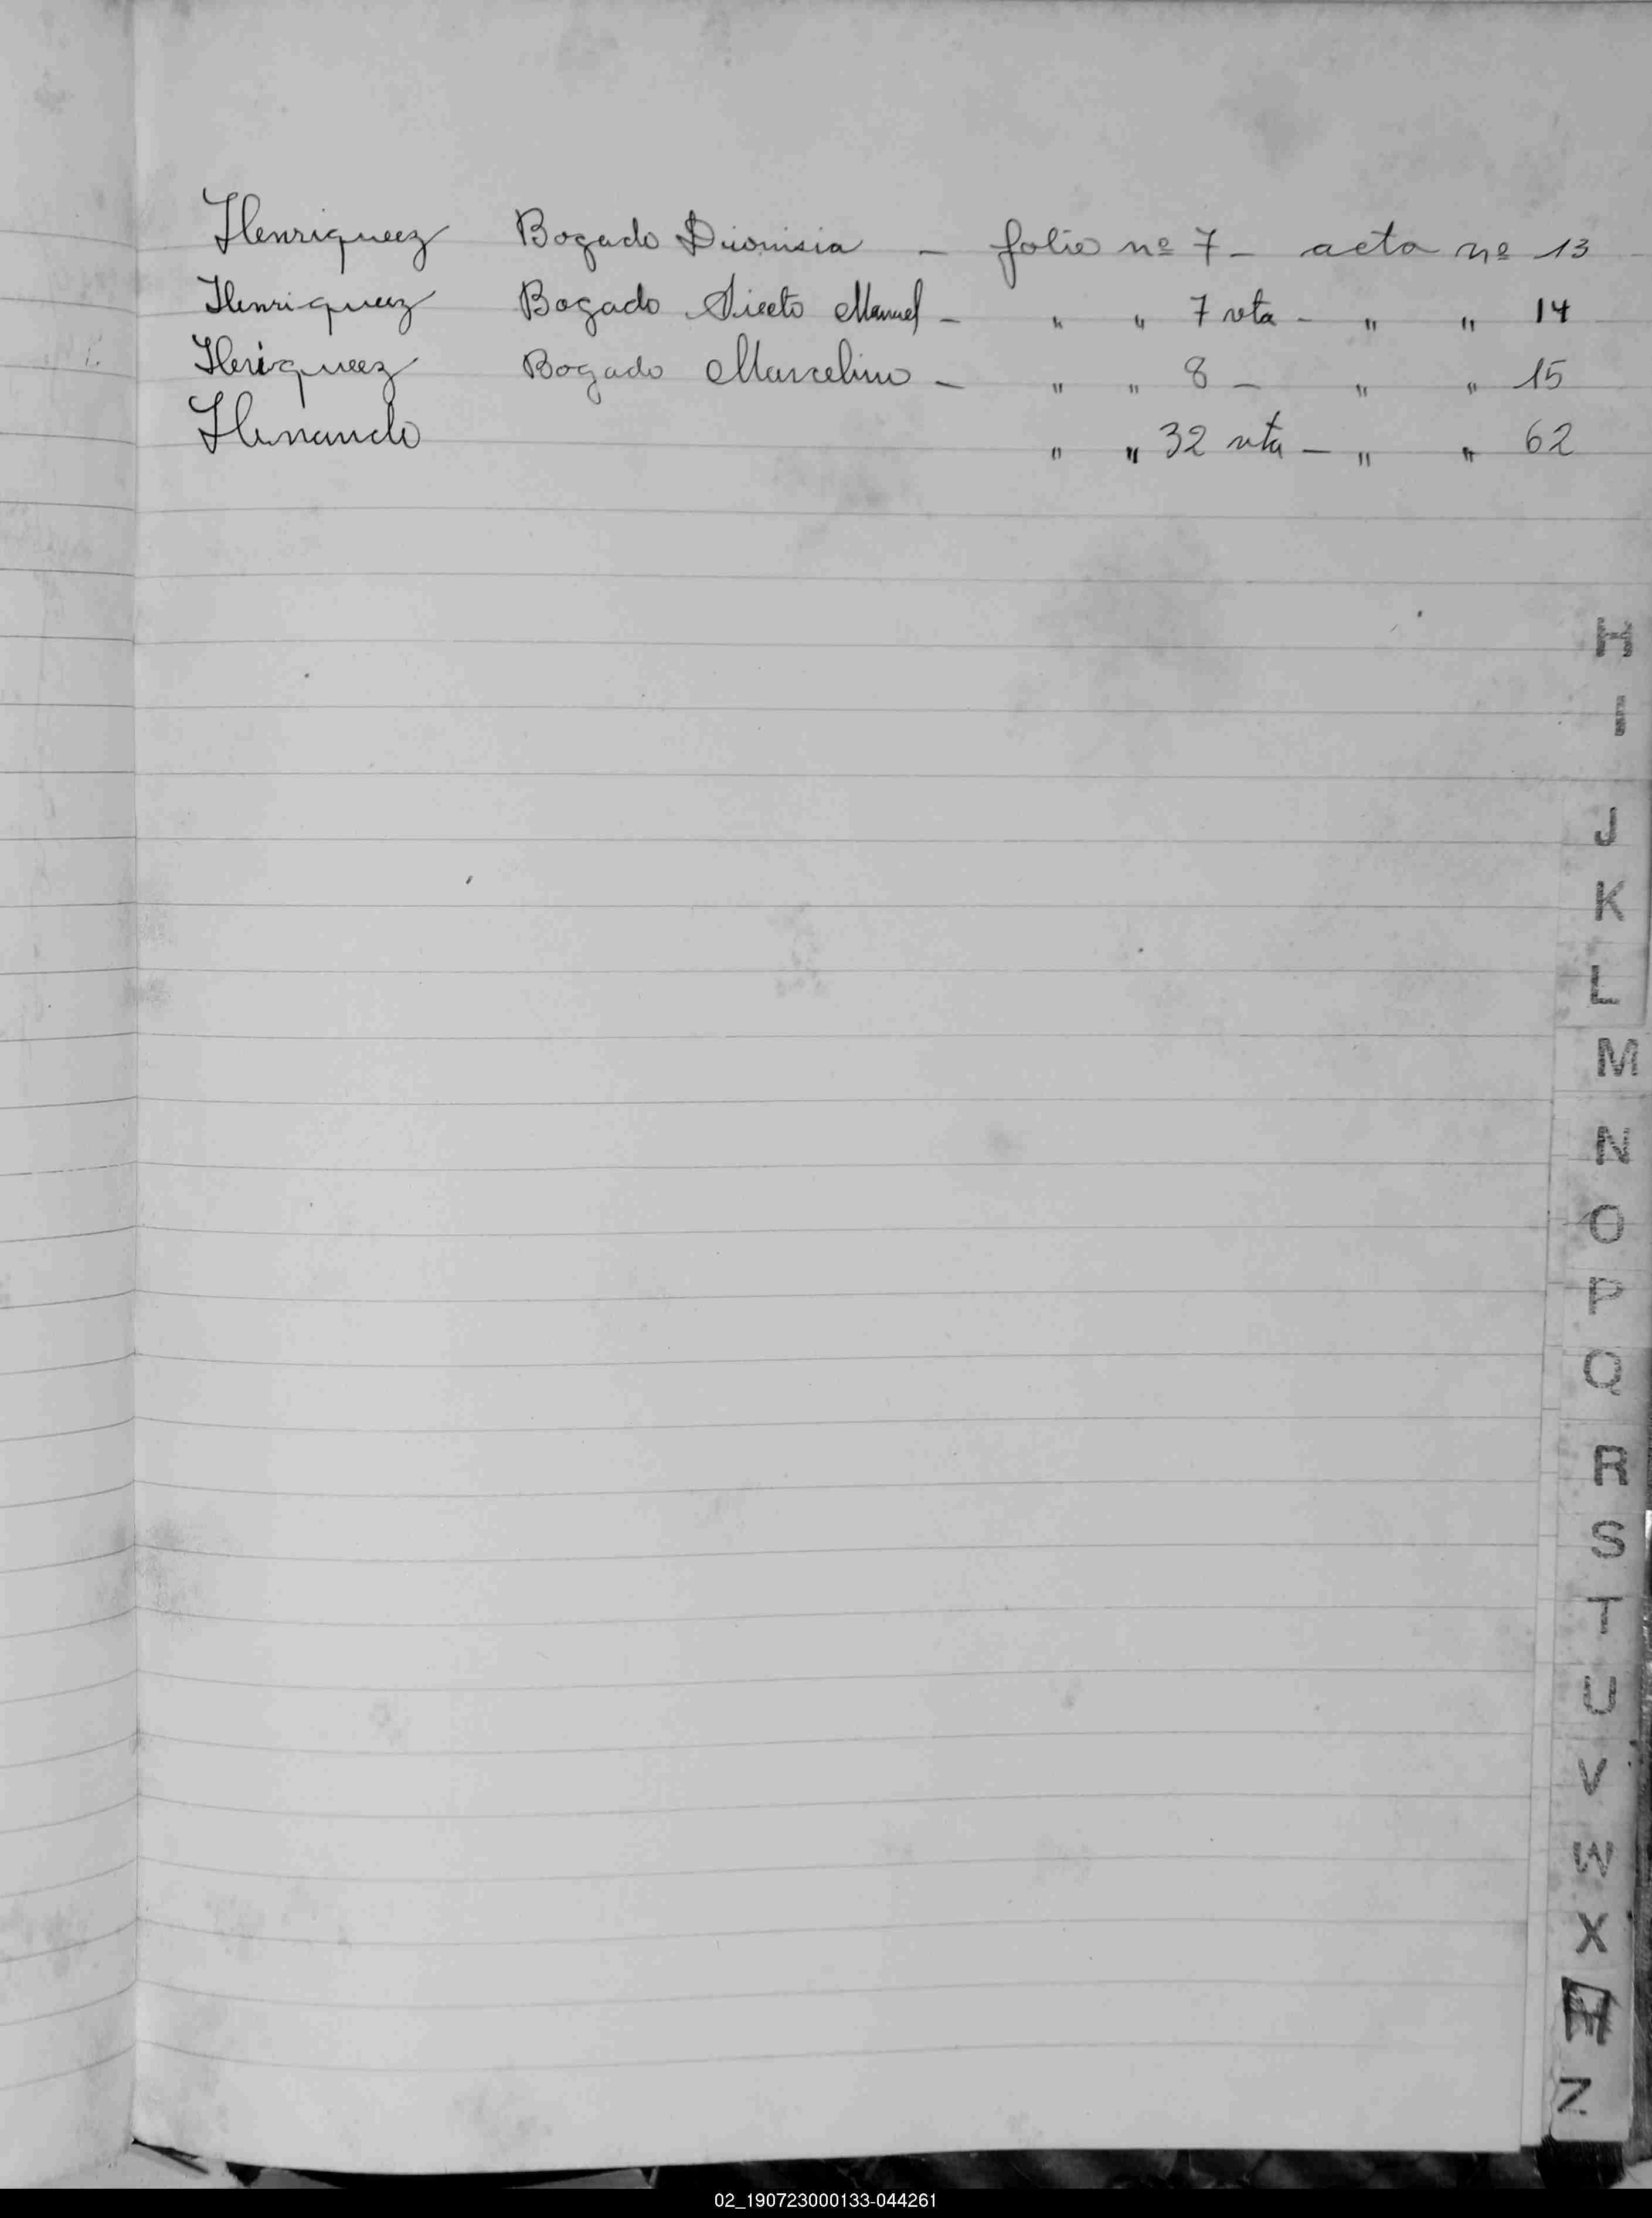 Henriquez Bogado Dionisia - folio nº 7 - acta nº 13
Henriquez Bogado Sixto Manuel - " " 7 vta - " " 14
Heriquez Bogado Marcelino - " " 8 - " " 15
" " 32 vta - " " 62
H
I
J
K
L
M
N
O
P
Q
R
S
T
U
V
W
X
Z
02_190723000133-044261